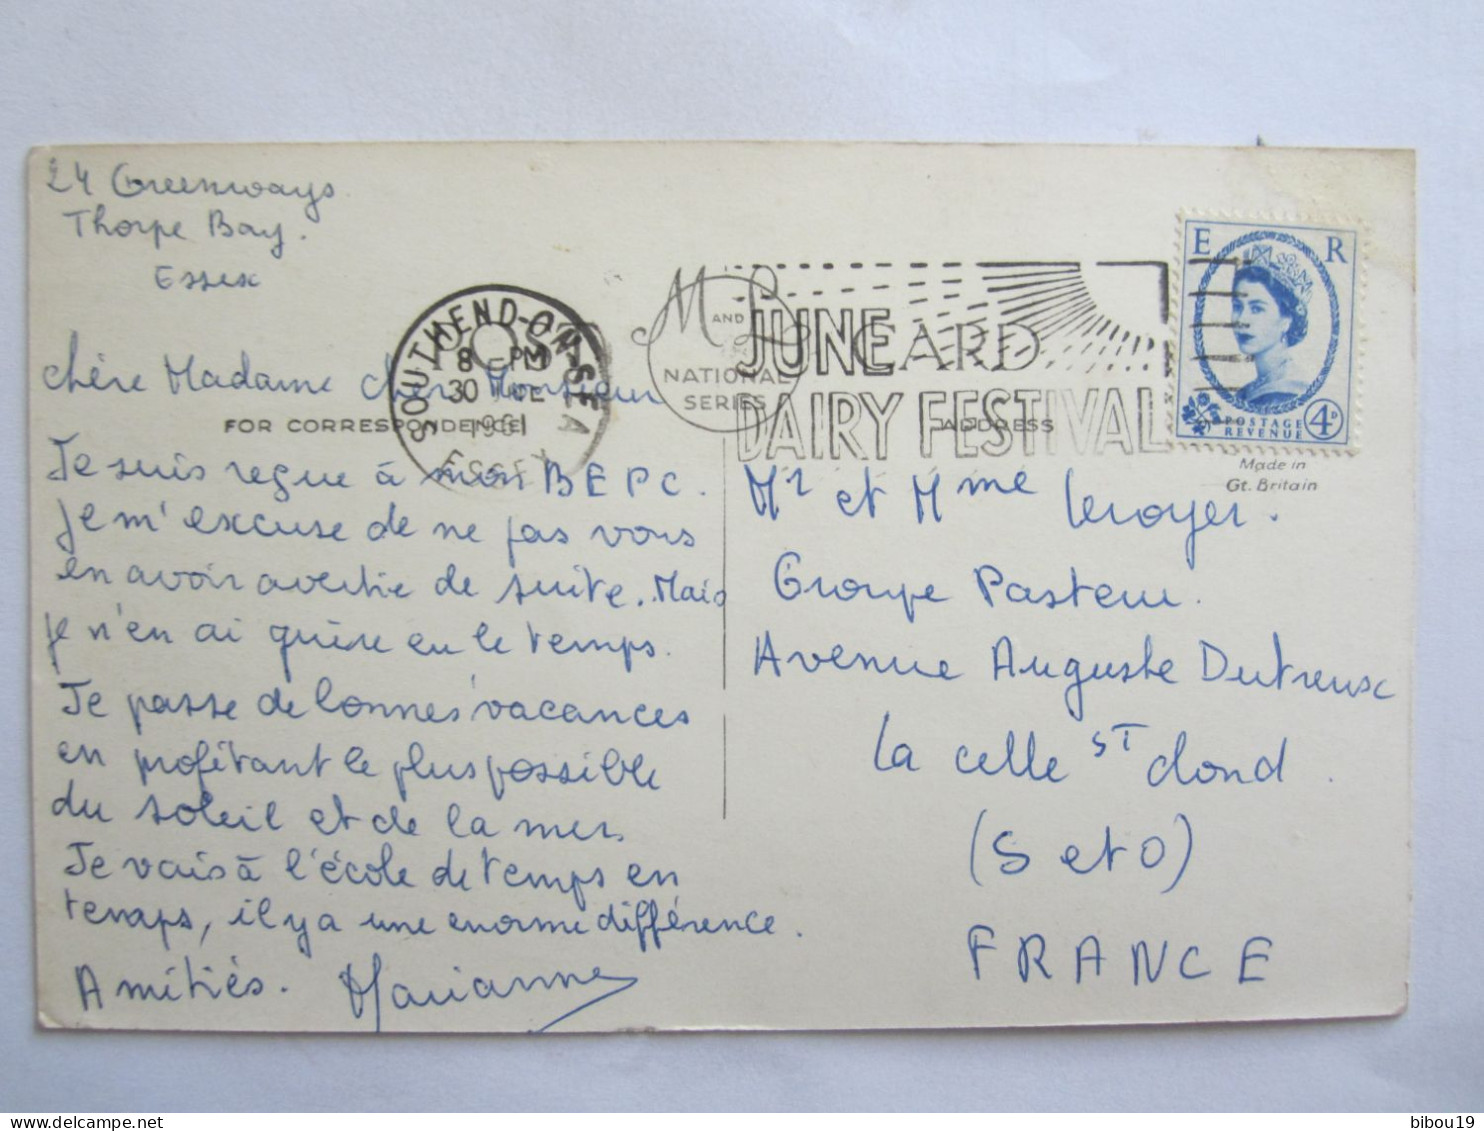 24 Greenways
Thorpe Bay.
Essex
Chère Madame cher Monsieur
FOR CORRESPONDENCE
Je suis reçue à mon BEPC.
Je m'excuse de ne pas vous
en avoir avertie de suite. Mais
je n'en ai guère eu le temps.
Je passe de bonnes vacances
en profitant le plus possible
du soleil et de la mer.
Je vais à l'école de temps en
temps, il y a une énorme différence.
Amitiés. Marianne
SOUTHEND-ON-SEA
8 PM
30
1961
ESSEX
M AND L
NATIONAL
SERIES
POST CARD
JUNE
DAIRY FESTIVAL
ADDRESS
E R
POSTAGE
REVENUE
4D
Made in
Gt. Britain
Mr et Mme Leroyer.
Groupe Pasteur.
Avenue Auguste Dutreux
La Celle ST Cloud.
(S et O)
FRANCE
bibou19